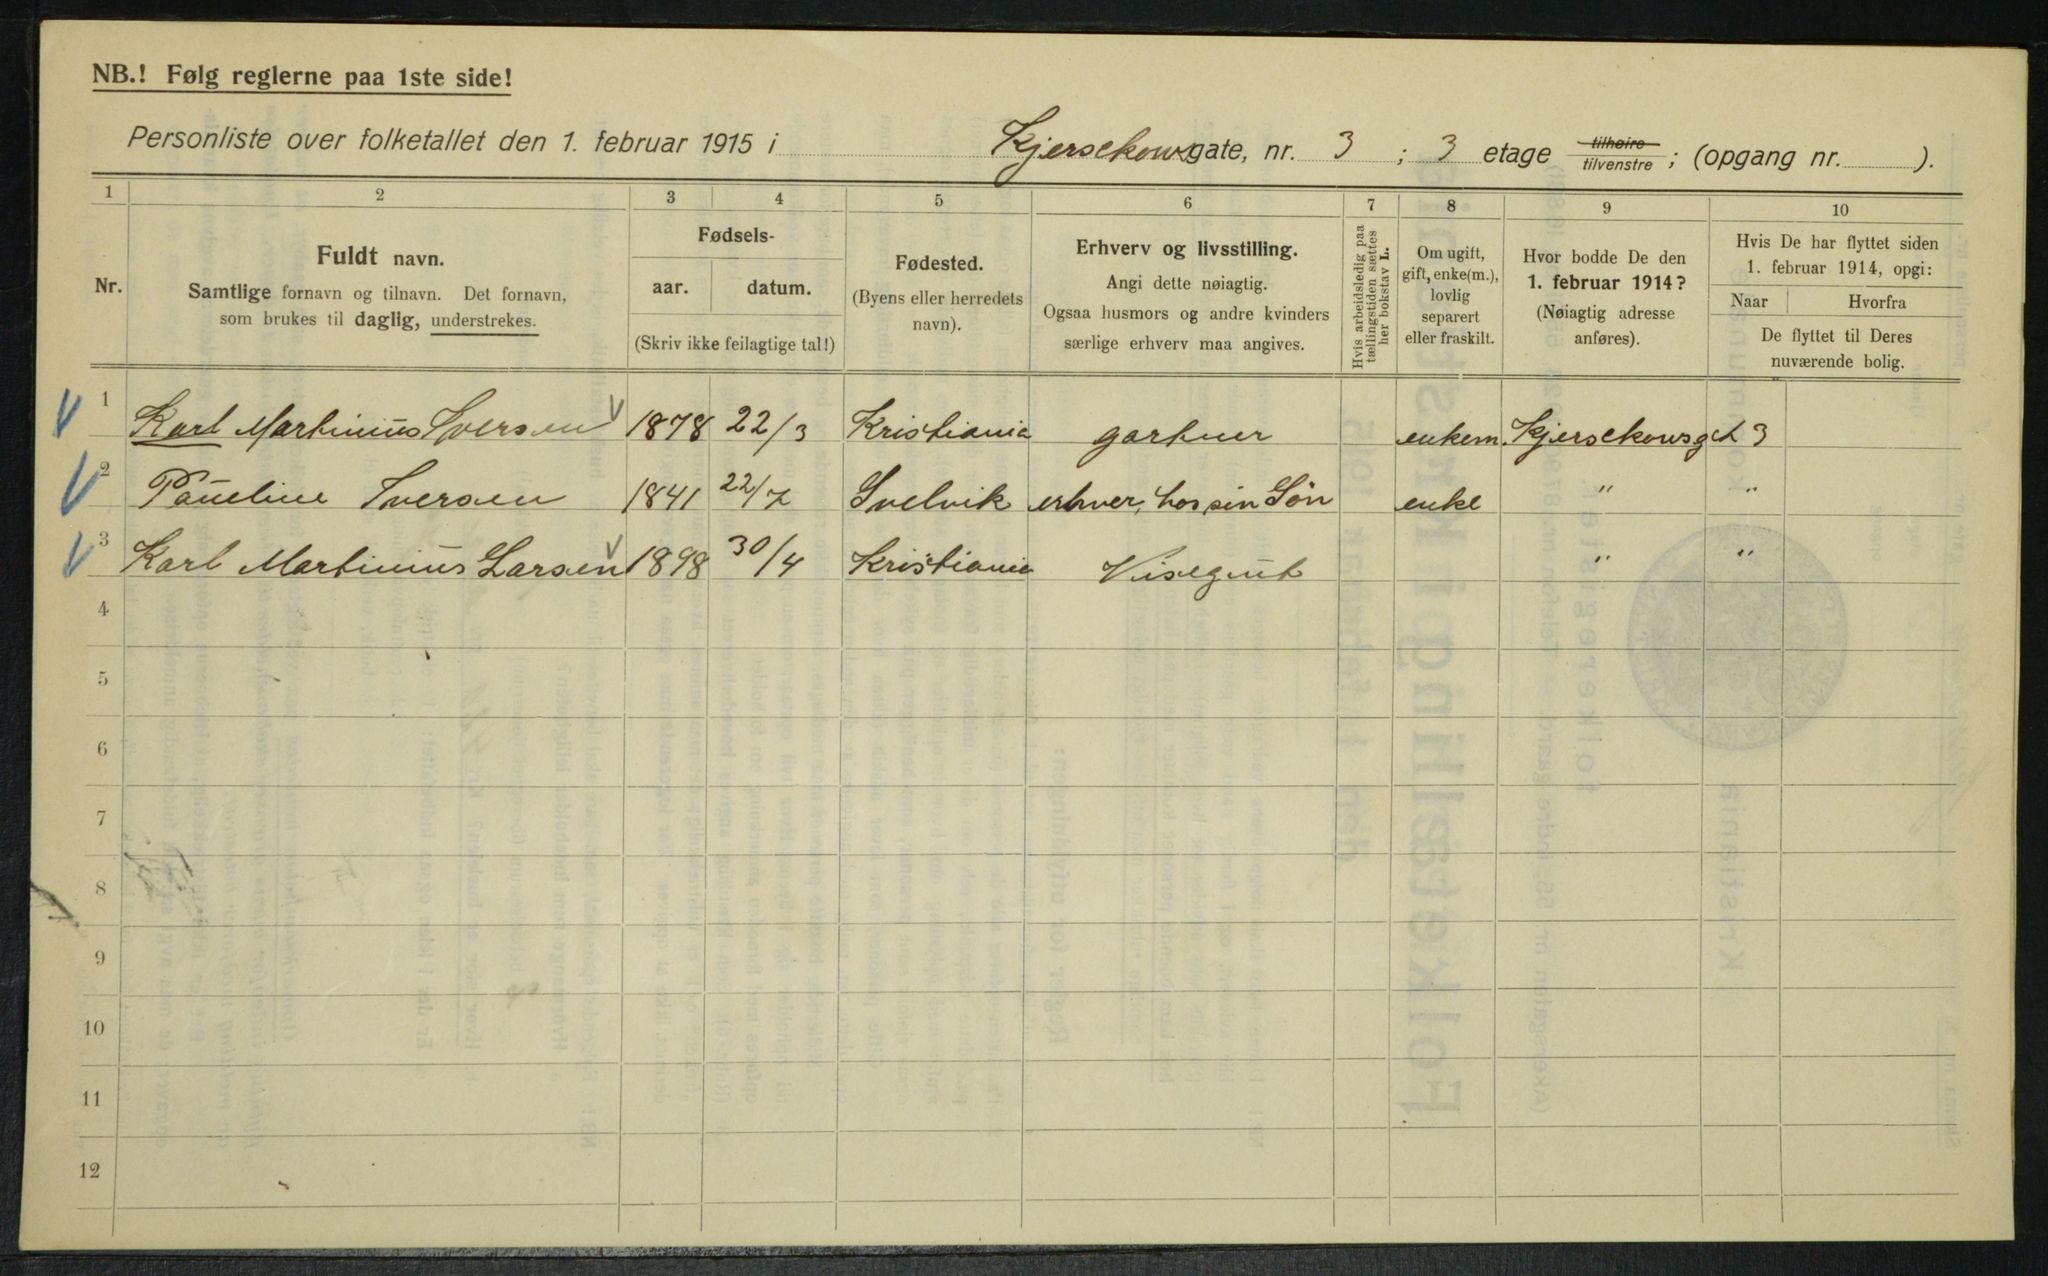 NB.! Følg reglerne paa 1ste side!
Personliste over folketallet den 1. februar 1915 i Kjersckowsgate, nr. 3 ; 3 etage tilhøire tilvenstre ; (opgang nr. ).
1 2 3 4 5 6 7 8 9 10
Nr.
Fuldt navn.
Samtlige fornavn og tilnavn. Det fornavn,
som brukes til daglig, understrekes.
Fødsels-
aar. datum.
(Skriv ikke feilagtige tal!)
Fødested.
(Byens eller herredets
navn).
Erhverv og livsstilling.
Angi dette nøiagtig.
Ogsaa husmors og andre kvinders
særlige erhverv maa angives.
Hvis arbeidsledig paa
tællingstiden sættes
her bokstav L.
Om ugift,
gift, enke(m.),
lovlig
separert
eller fraskilt.
Hvor bodde De den
1. februar 1914?
(Nøiagtig adresse
anføres).
Hvis De har flyttet siden
1. februar 1914, opgi:
Naar Hvorfra
De flyttet til Deres
nuværende bolig.
1 Karl Martinius Iversen 1878 22/3 Kristiania gartner enkem. Kjersckowsgt 3
2 Paueline Iversen 1841 22/7 Svelvik erhver, hos sin Søn enke " "
3 Karl Martinius Larsen 1898 30/4 Kristiania Visegut " "
4
5
6
7
8
9
10
11
12